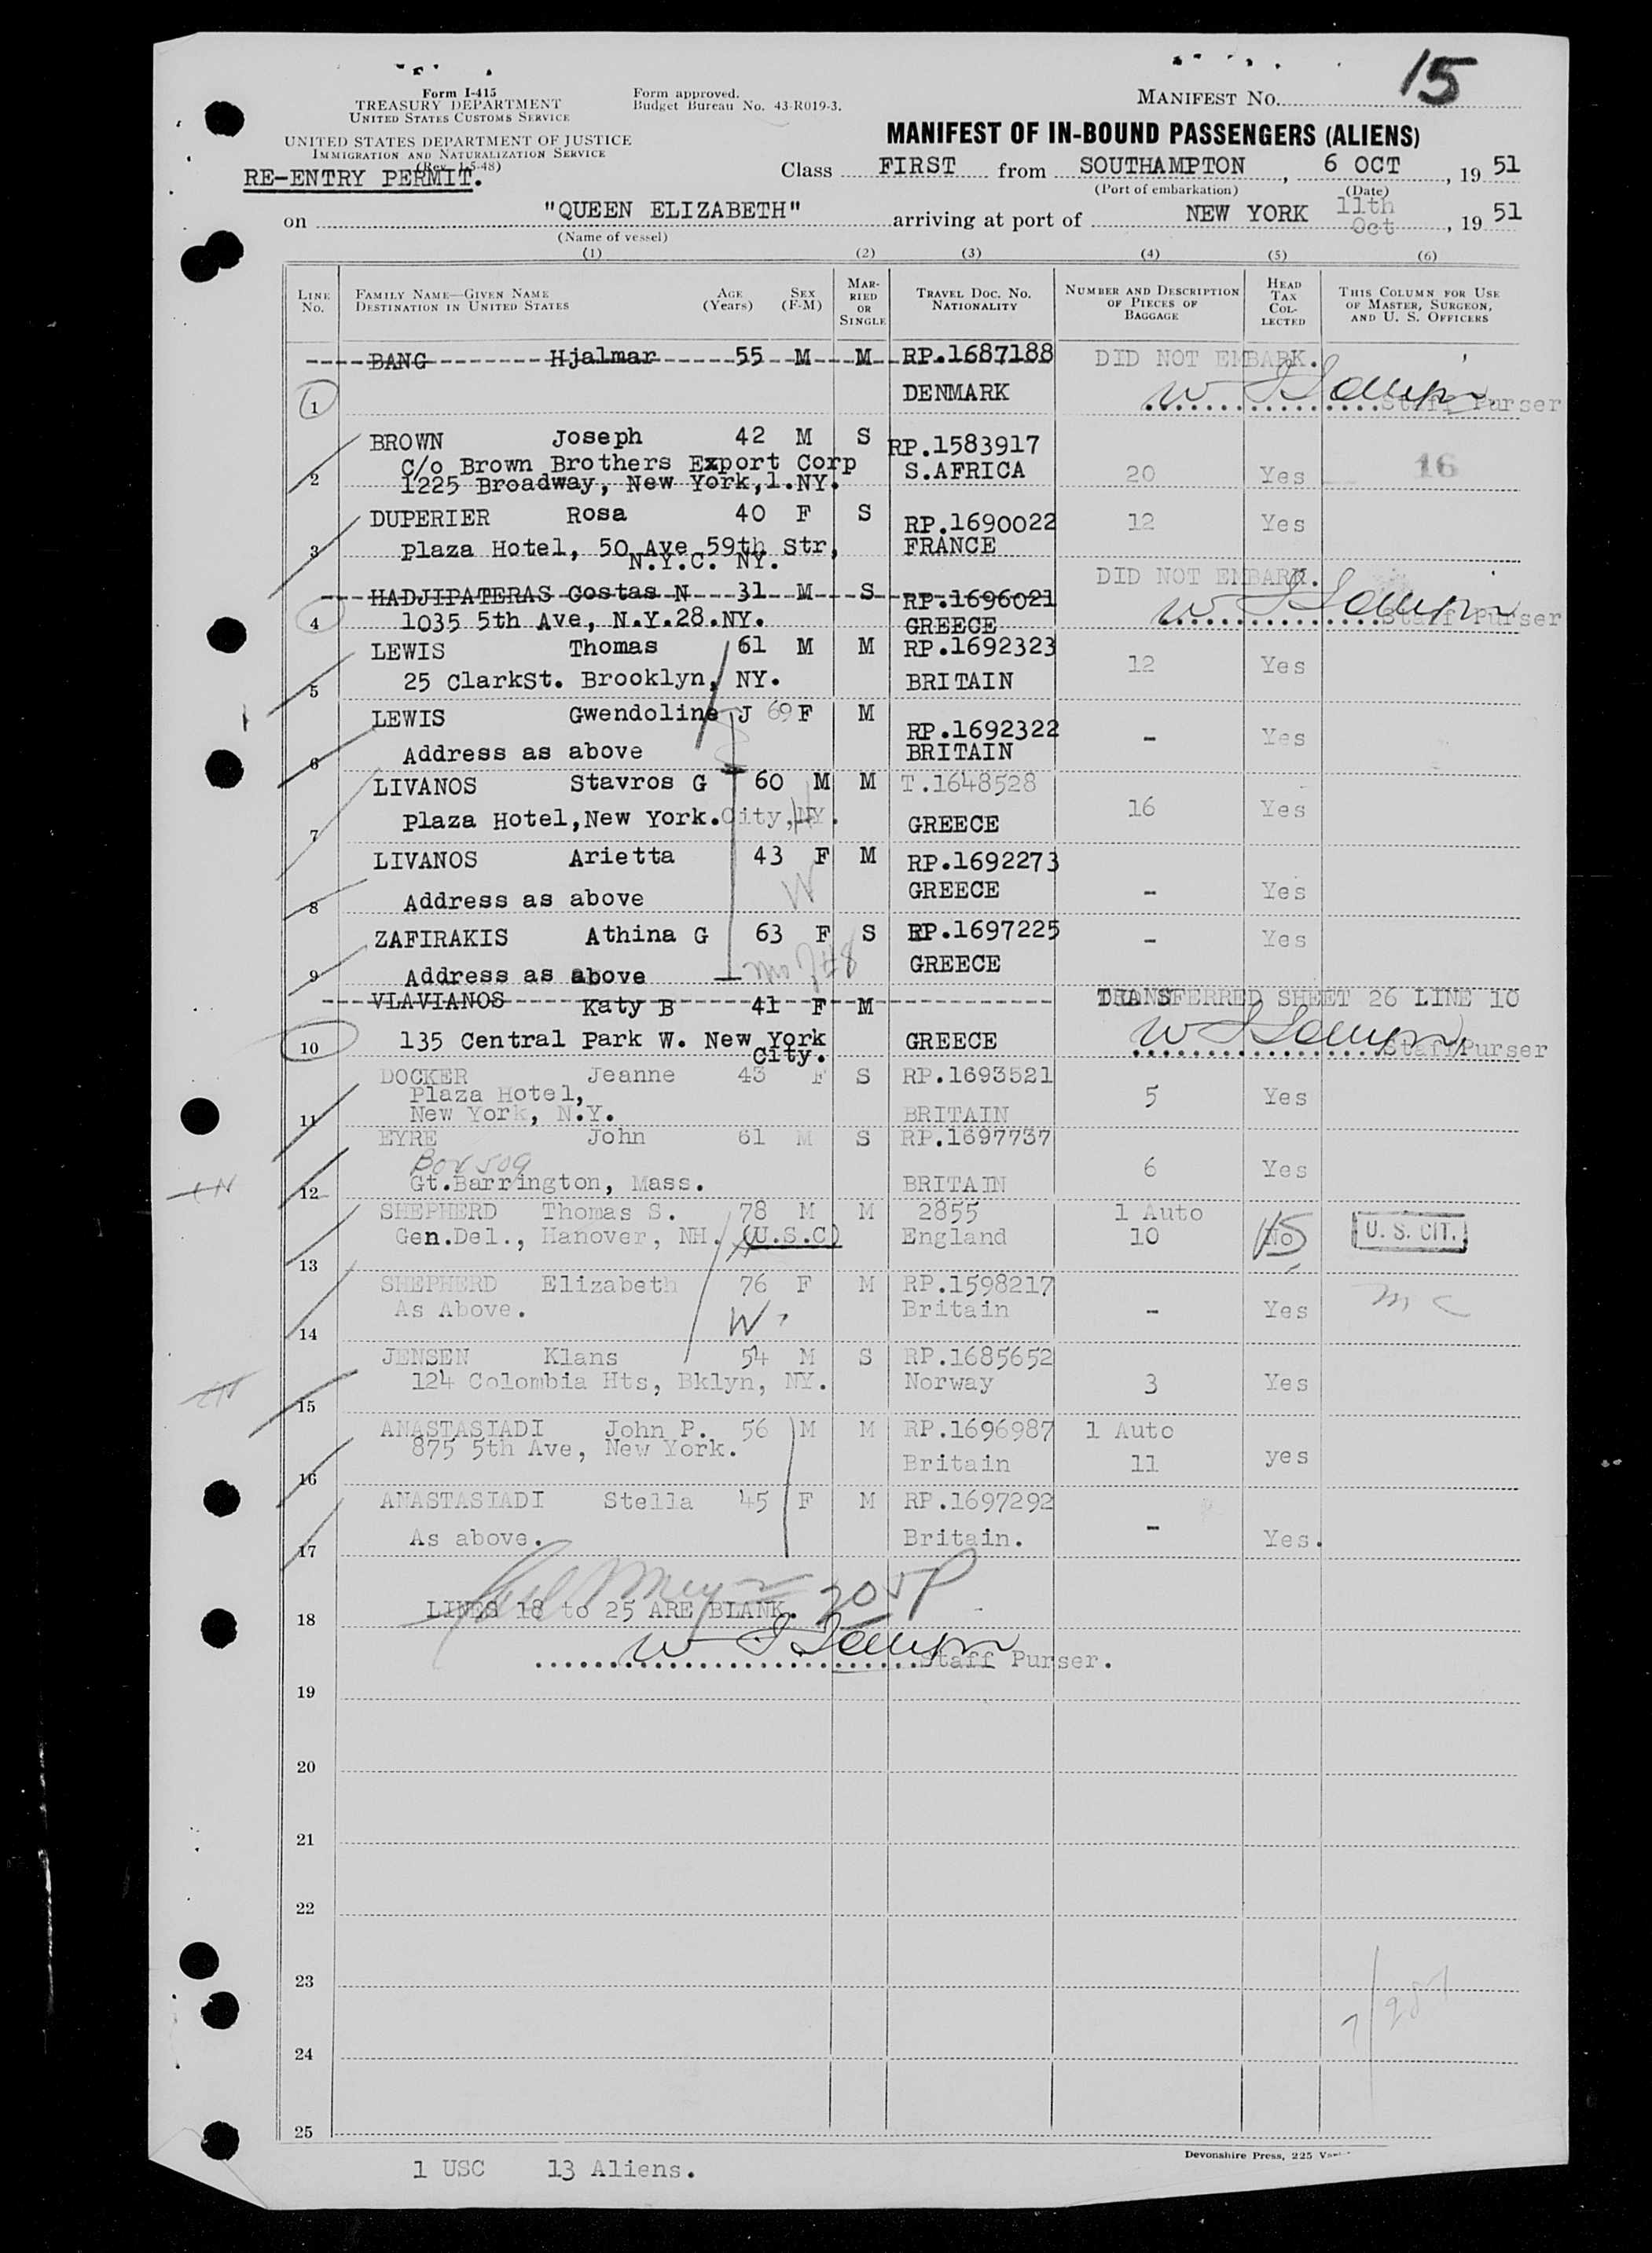 15
Form I-415
TREASURY DEPARTMENT
UNITED STATES CUSTOMS SERVICE
UNITED STATES DEPARTMENT OF JUSTICE
IMMIGRATION AND NATURALIZATION SERVICE
(Rev. 1-5-48)
RE-ENTRY PERMIT.
Form approved.
Budget Bureau No. 43-R019-3.
MANIFEST No.
MANIFEST OF IN-BOUND PASSENGERS (ALIENS)
Class FIRST from SOUTHAMPTON, 6 OCT, 19 51
(Port of embarkation) (Date)
on "QUEEN ELIZABETH" arriving at port of NEW YORK 11th Oct, 19 51
(Name of vessel)
(1) (2) (3) (4) (5) (6)
LINE No. FAMILY NAME—GIVEN NAME DESTINATION IN UNITED STATES AGE (Years) SEX (F-M) MARRIED OR SINGLE TRAVEL DOC. NO. NATIONALITY NUMBER AND DESCRIPTION OF PIECES OF BAGGAGE HEAD TAX COLLECTED THIS COLUMN FOR USE OF MASTER, SURGEON, AND U. S. OFFICERS
BANG Hjalmar 55 M M RP.1687188 DID NOT EMBARK.
1 DENMARK Staff Purser
BROWN Joseph 42 M S RP.1583917
C/o Brown Brothers Export Corp S.AFRICA 20 Yes 16
2 1225 Broadway, New York,1.NY.
DUPERIER Rosa 40 F S RP.1690022 12 Yes
3 Plaza Hotel, 50 Ave 59th Str, FRANCE
N.Y.C. NY.
DID NOT EMBARK.
HADJIPATERAS Costas N 31 M S RP.1696021
4 1035 5th Ave, N.Y.28.NY. GREECE Staff Purser
LEWIS Thomas 61 M M RP.1692323
5 25 ClarkSt. Brooklyn, NY. BRITAIN 12 Yes
LEWIS Gwendoline J 69 F M RP.1692322
6 Address as above BRITAIN - Yes
LIVANOS Stavros G 60 M M T.1648528
7 Plaza Hotel,New York.City,NY. GREECE 16 Yes
LIVANOS Arietta 43 F M RP.1692273
8 Address as above W GREECE - Yes
ZAFIRAKIS Athina G 63 F S RP.1697225 - Yes
9 Address as above GREECE
VLAVIANOS Katy B 41 F M TRANSFERRED SHEET 26 LINE 10
10 135 Central Park W. New York City. GREECE Staff Purser
DOCKER Jeanne 43 F S RP.1693521
Plaza Hotel, 5 Yes
11 New York, N.Y. BRITAIN
EYRE John 61 M S RP.1697737
Box 509 6 Yes
12 Gt.Barrington, Mass. BRITAIN
SHEPHERD Thomas S. 78 M M 2855 1 Auto
Gen.Del., Hanover, NH. (U.S.C) England 10 No U. S. CIT.
13
SHEPHERD Elizabeth 76 F M RP.1598217
As Above. W Britain - Yes
14
JENSEN Klans 54 M S RP.1685652
124 Colombia Hts, Bklyn, NY. Norway 3 Yes
15
ANASTASIADI John P. 56 M M RP.1696987 1 Auto
875 5th Ave, New York. Britain 11 yes
16
ANASTASIADI Stella 45 F M RP.1697292
As above. Britain. - Yes.
17
18 LINES 18 to 25 ARE BLANK.
Staff Purser.
19
20
21
22
23
24
25
Devonshire Press, 225
1 USC 13 Aliens.